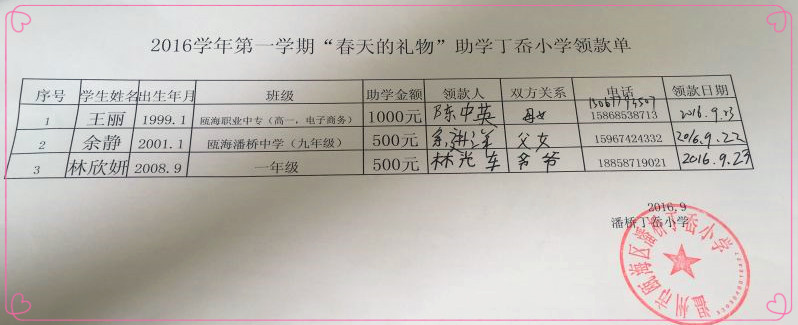 2016学年第一学期“春天的礼物”助学丁岙小学领款单
序号 学生姓名 出生年月 班级 助学金额 领款人 双方关系 电话 领款日期
1 王丽 1999.1 瓯海职业中专（高一，电子商务） 1000元 陈中英 母女 15868538713 2016.9.23
2 余静 2001.1 瓯海潘桥中学（九年级） 500元 父女 15967424332 2016.9.22
3 林欣妍 2008.9 一年级 500元 林光车 爷爷 18858719021 2016.9.23
2016.9
潘桥丁岙小学
温州市瓯海区潘桥丁岙小学